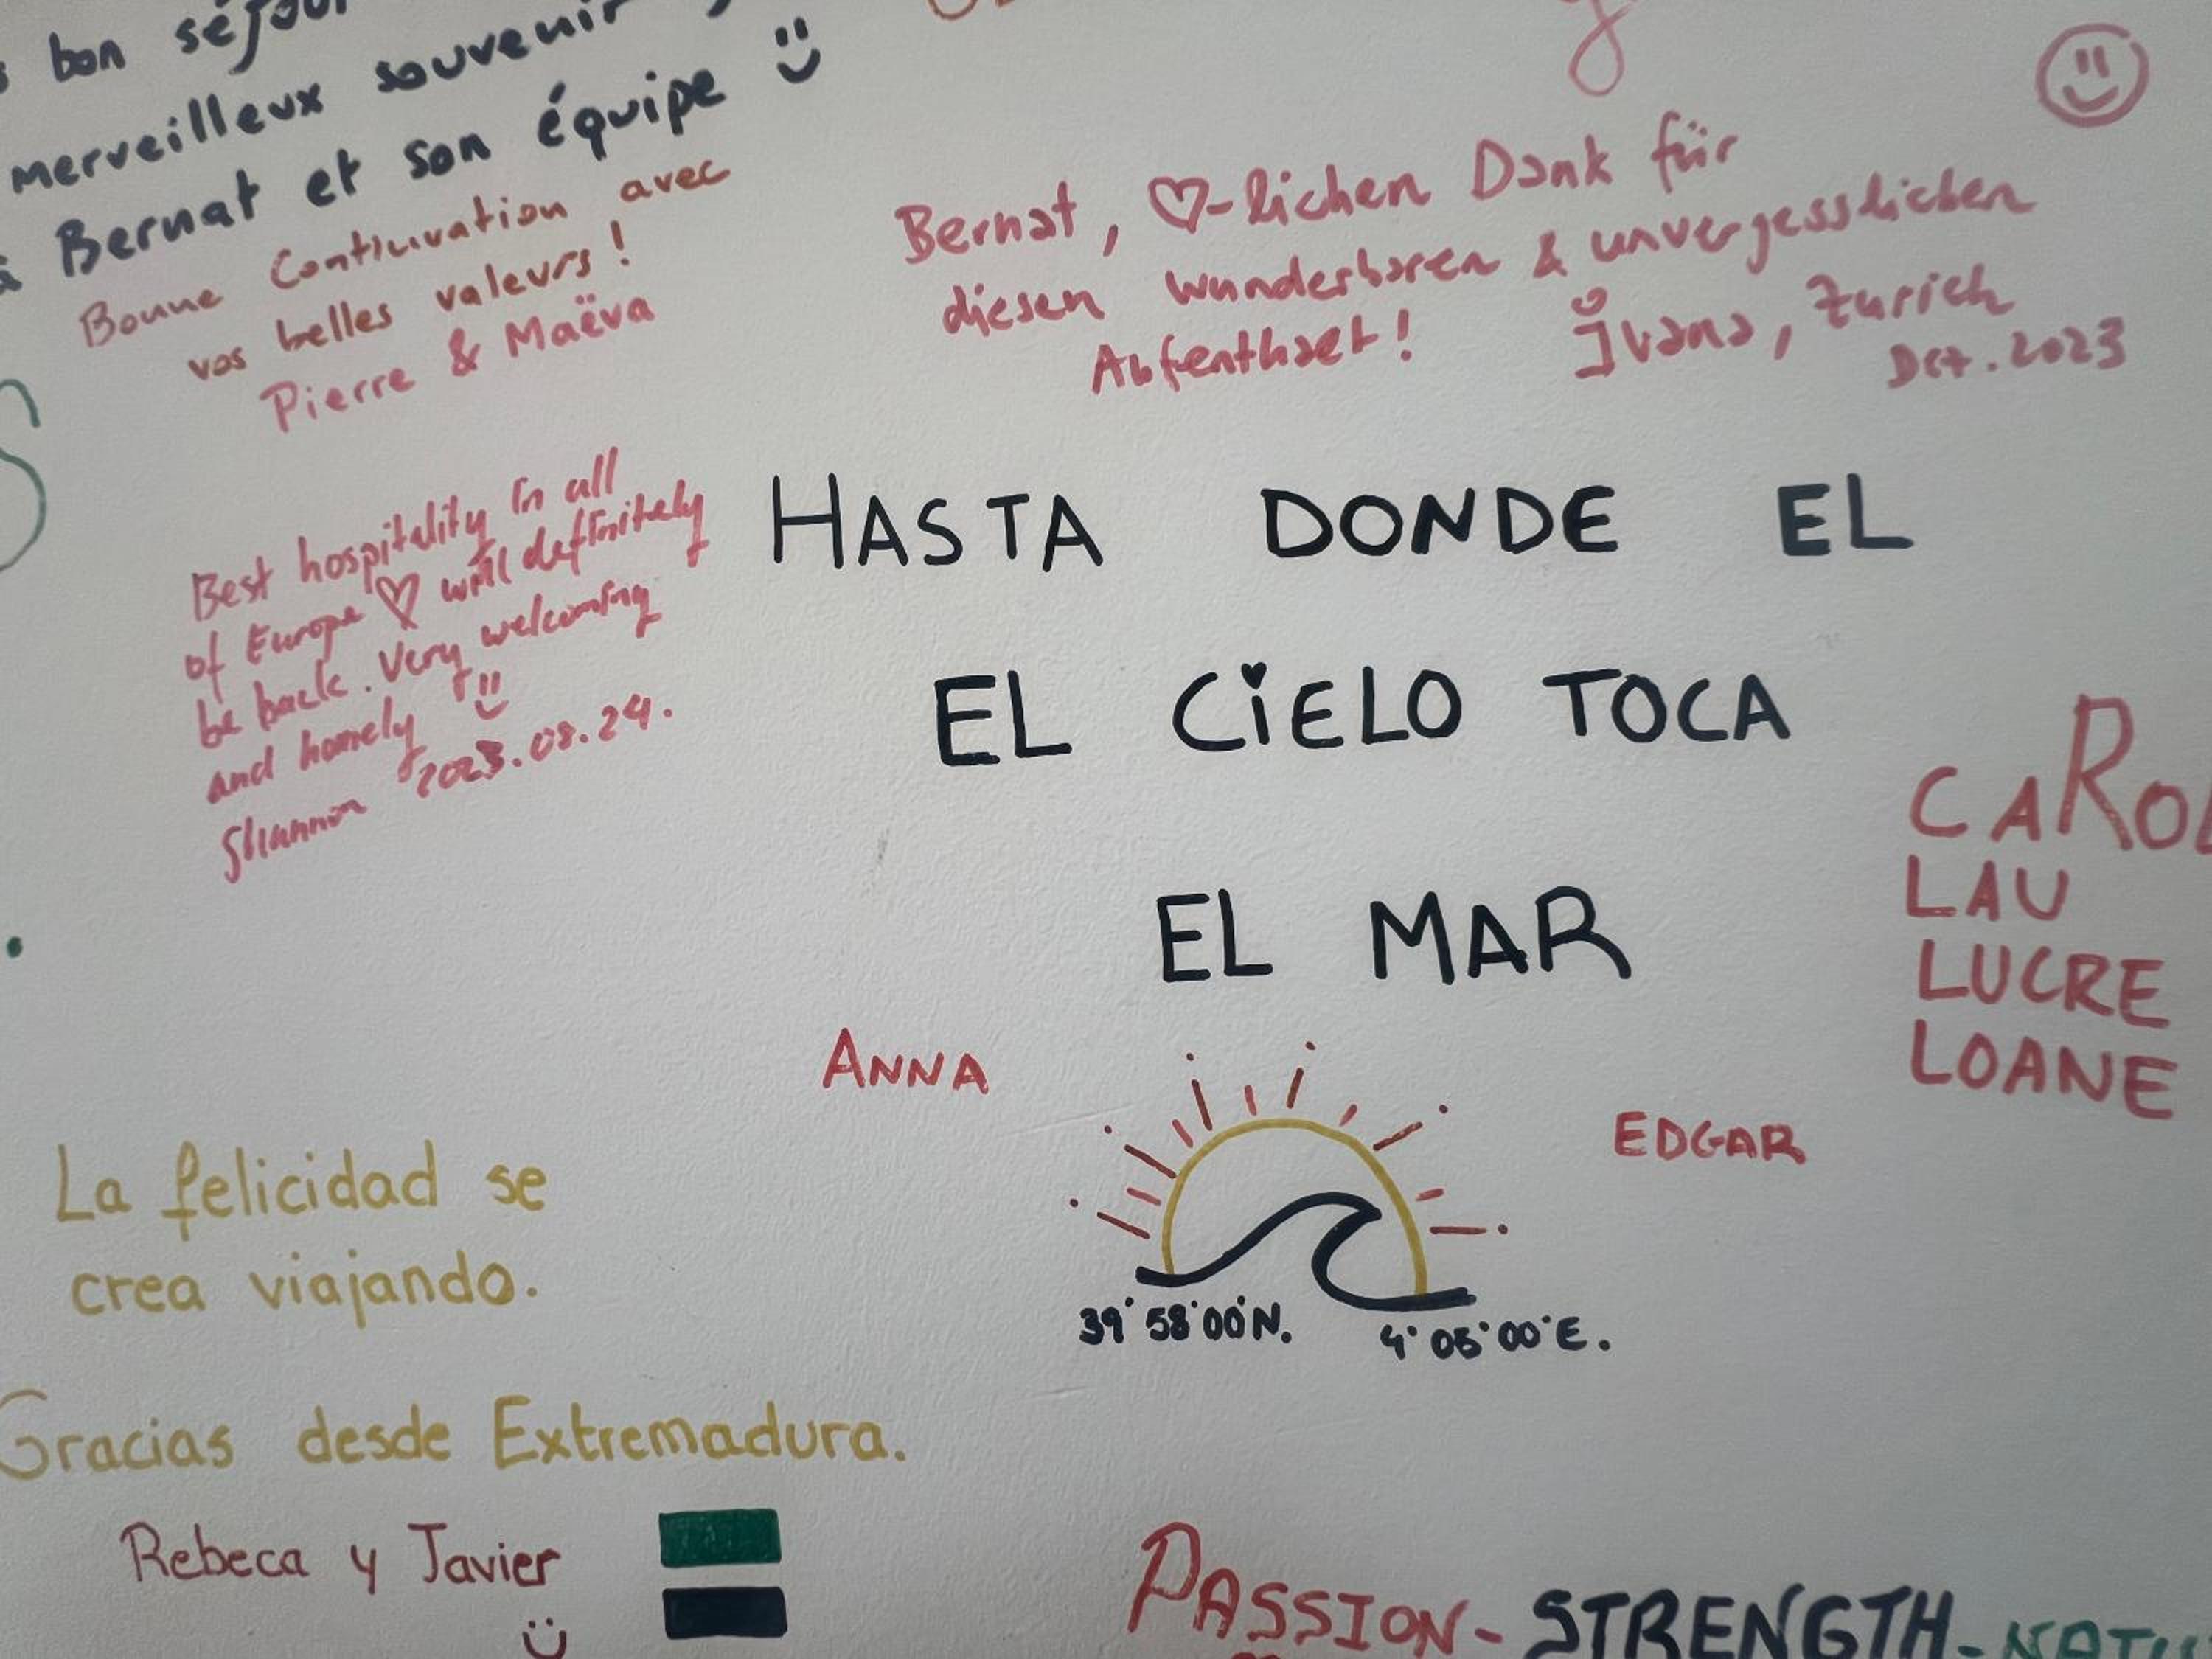 bon séjour
merveilleux souvenir
à Bernat et son équipe
Bonne Continuation avec
vos belles valeurs!
Pierre & Maëva
Bernat, ♡-lichen Dank für
diesen wunderbaren & unvergesslichen
Aufenthalt!
Ivana, Zürich
Dez. 2023
Best hospitality in all
of Europe ♡ will definitely
be back. Very welcoming
and homely
Shannon 2023.08.24.
HASTA DONDE EL
EL CiELO TOCA
EL MAR
CAROL
LAU
LUCRE
LOANE
ANNA
EDGAR
39°58'00"N. 4°05'00"E.
La felicidad se
crea viajando.
Gracias desde Extremadura.
Rebeca y Javier
PASSION-STRENGTH-NATU